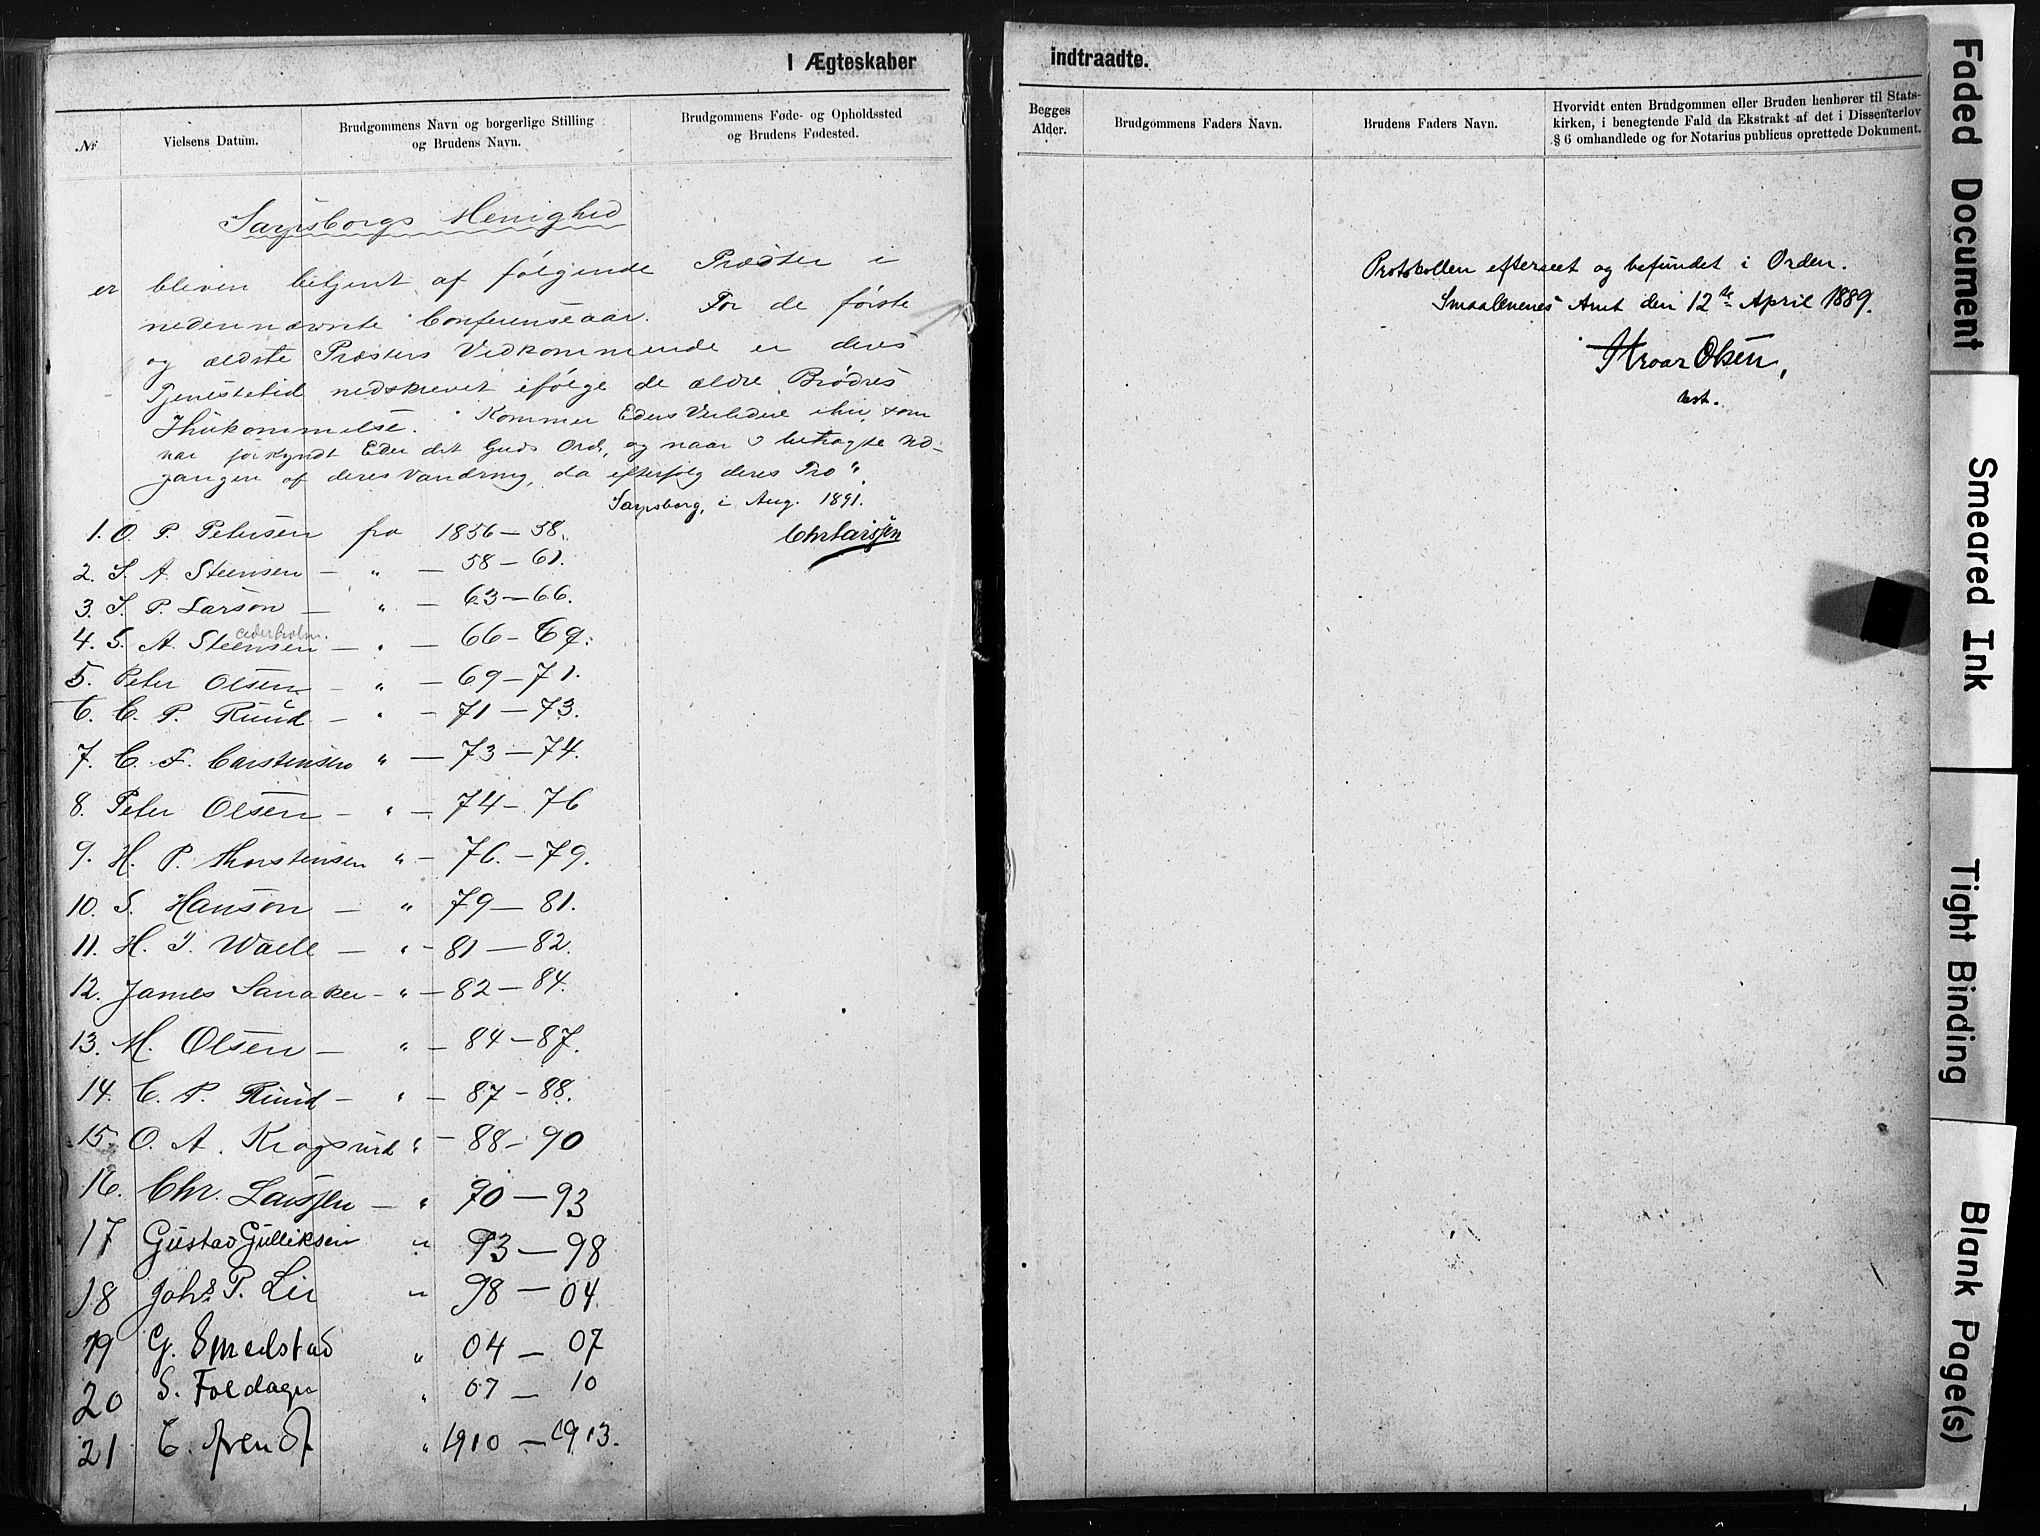 I Ægteskaber
№
Vielsens Datum.
Brudgommens Navn og borgerlige Stilling
og Brudens Navn.
Brudgommens Føde- og Opholdssted
og Brudens Fødested.
Sarpsborgs Menighed
er bleven betjent af følgende Præster i
nedennævnte Conferenseaar. For de første
og ældste Præsters Vedkommende er deres
Tjenestetid nedskrevet ifølge de ældre Brødres
Ihukommelse. Kommer Eders Veiledere ihu som
har forkyndt Eder det Guds Ord, og naar I betragte Ud-
gangen af deres Vandring, da efterfølg deres Tro".
Sarpsborg, i Aug. 1891.
Chr Larssen
1. O. P. Petersen fra 1856 – 58.
2. S. A. Steensen – " – 58 – 61.
3. S. P. Larson – " – 63 – 66.
cederholm.
4. S. A. Steensen – " – 66 – 69.
5. Peter Olsen – " – 69 – 71.
6. C. P. Ruud – " – 71 – 73.
7. C. F. Carstensen " – 73 – 74.
8. Peter Olsen – " – 74 – 76
9. H. P. Thorstensen " – 76. – 79.
10. S. Hanson – " 79 – 81.
11. H. J. Waele – " – 81 – 82.
12. James Sanaker – " – 82 – 84.
13. M. Olsen – " – 84 – 87.
14. C. P. Ruud – " – 87 – 88.
15. O. A. Krogsrud " – 88 – 90
16. Chr. Larssen – " 90 – 93
17 Gustav Gulliksen " 93 – 98
18 Johs P. Lie " 98 – 04.
19 G. Smedstad " 04 – 07
20 S. Foldager " 07 – 10
21 C. Arendt " 1910 – 1913.
indtraadte.
Begges
Alder.
Brudgommens Faders Navn.
Brudens Faders Navn.
Hvorvidt enten Brudgommen eller Bruden henhører til Stats-
kirken, i benegtende Fald da Ekstrakt af det i Dissenterlov
§ 6 omhandlede og for Notarius publicus oprettede Dokument.
Protokollen efterseet og befundet i Orden.
Smaalenenes Amt den 12te April 1889.
Hroar Olsen,
cst.
Faded Document
Smeared Ink
Tight Binding
Blank Page(s)